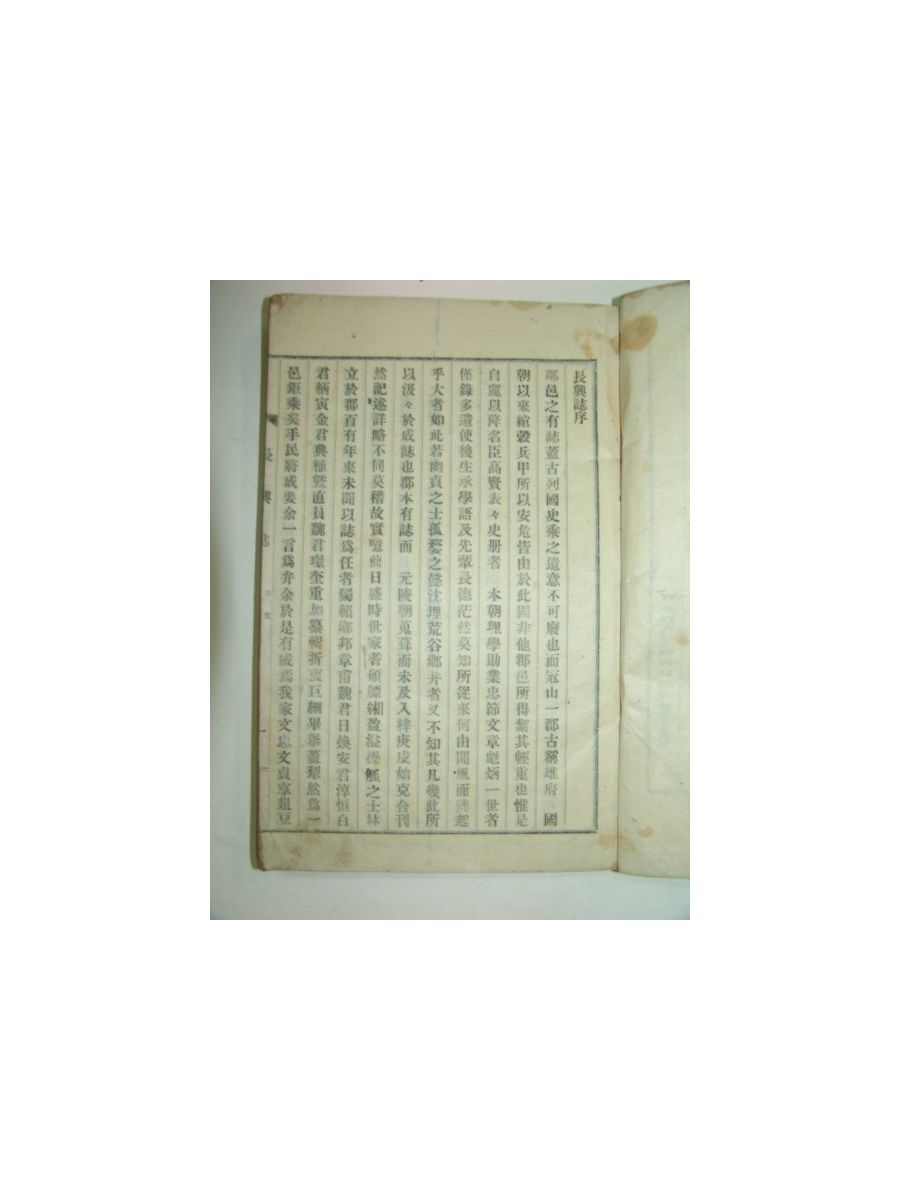 長興誌序
郡邑之有誌蓋古列國史乘之遺意不可廢也而冠山一郡古稱雄府 國
朝以來綰轂兵甲所以安危皆由於此固非他郡邑所得絜其輕重也惟是
自麗以降名臣高賢表々史册者 本朝理學勛業忠節文章彪炳一世者
僅錄多遺使後生承學語及先輩長德茫然莫知所從來何由聞風而興起
乎大者如此若幽貞之士孤嫠之懿沈埋荒谷鄉井者又不知其凡幾此所
以汲々於成誌也郡本有誌而 元陵朝蒐葺而未及入梓庚戌始克合刊
然記述詳略不同莫稽故實噫曲日盛時世家者碩縹緗盈溢操觚之士林
立於郡百有年來未聞以誌爲任者獨賴鄉邦章甫魏君日煥安君淳恒白
君樀寅金君典植曁直員魏君環奎重加纂輯折衷巨細畢擧蓋犁然爲一
邑鉅乘矣手民將戚要余一言爲弁余於是有感焉我家文忠文貞享俎豆
長興誌 序文 一